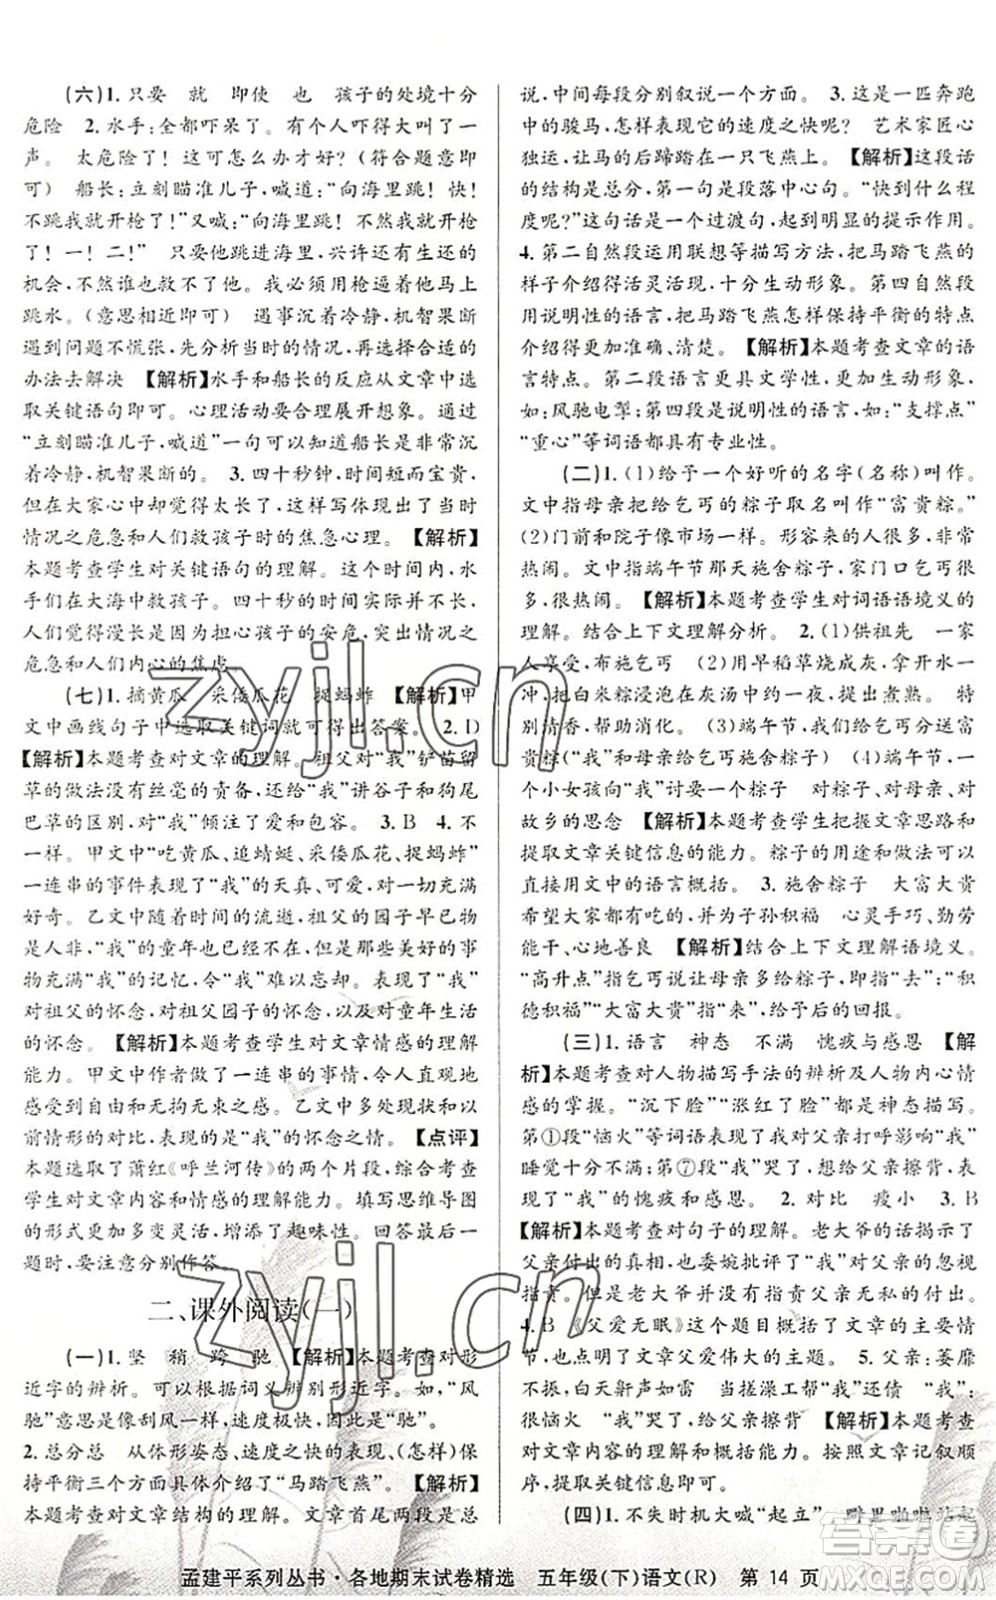 (六)1.只要 就 即使 也 孩子的处境十分
危险 2.水手:全都吓呆了。有个人吓得大叫了一
声。 太危险了!这可怎么办才好?(符合题意即
可) 船长:立刻瞄准儿子,喊道:“向海里跳!快!
不跳我就开枪了!”又喊:“向海里跳!不然我就开枪
了!一!二!” 只要他跳进海里,兴许还有生还的
机会,不然就难救了。我必须用枪逼着他马上
跳水。(意思相近即可) 遇事沉着冷静,机智果断
遇到问题不慌张,先分析当时的情况,再选择合适的
办法去解决 【解析】水手和船长的反应从文章中选
取关键语句即可。心理活动要合理展开想象。通过
“立刻瞄准儿子,喊道”一句可以看出,船长是非常沉
着冷静,机智果断的。 3.四十秒钟,时间短而宝贵,
但在大家心中却觉得太长了,这样写体现了当时
情况之危急和人们救孩子时的焦急心理。【解析】
本题考查学生对关键语句的理解。这个时间内,水
手们在大海中救孩子。四十秒的时间实际并不长,
人们觉得漫长是因为担心孩子的安危,突出情况之
危急和人们内心的焦虑。
(七)1.摘黄瓜 采倭瓜花 捉蚂蚱 【解析】甲
文中画线句子中选取关键词就可得出答案。 2.D
【解析】本题考查对文章的理解。祖父对“我”铲苗留
草的做法没有丝毫的责备,还给“我”讲谷子和狗尾
巴草的区别,对“我”倾注了爱和包容。 3.B 4.不
一样。甲文中“吃黄瓜、追蜻蜓、采倭瓜花、捉蚂蚱”
一连串的事件表现了“我”的天真、可爱,对一切充满
好奇。乙文中随着时间的流逝,祖父的园子早已物
是人非,“我”的童年也已经不在,但那些美好的事
物充满“我”的记忆,令“我”难以忘却。表现了“我”
对祖父的怀念、对祖父园子的怀念、对童年生活
的怀念。 【解析】本题考查学生对文章情感的理解
能力。甲文中作者做了一连串的事情,令人直观地
感受到自由和无拘无束之感。乙文中多处现状和以
前情形的对比,表现的是“我”的怀念之情。【点评】
本题选取了萧红《呼兰河传》的两个片段,综合考查
学生对文章内容和情感的理解能力。填写思维导图
的形式更多变灵活,增添了趣味性。回答最后一题
时,要注意分别作答。
二、课外阅读(一)
(一)1.坚 稍 跨 驰 【解析】本题考查对形
近字的辨析。可以根据词义辨别形近字。如,“风
驰”意思是像刮风一样,速度极快,因此是“驰”。
2.总分总 从体形姿态、速度之快的表现、(怎样)保
持平衡三个方面具体介绍了“马踏飞燕”。 【解析】
本题考查对文章结构的理解。文章首尾两段是总
说,中间每段分别叙说一个方面。 3.这是一匹奔跑
中的骏马,怎样表现它的速度之快呢? 艺术家匠心
独运,让马的后蹄踏在一只飞燕上。 【解析】这段话
的结构是总分,第一句是段落中心句。“快到什么程
度呢?”这句话是一个过渡句,起到明显的提示作用。
4.第二自然段运用联想等描写方法,把马踏飞燕的
样子介绍得灵活灵现,十分生动形象。第四自然段
用说明性的语言,把马踏飞燕怎样保持平衡的特点
介绍得更加准确、清楚。 【解析】本题考查文章的语
言特点。第二段语言更具文学性,更生动形象,
如:风驰电掣;第四段是说明性的语言,如:“支撑点”
“重心”等词语都具有专业性。
(二)1.(1)给予一个好听的名字(名称)叫作。
文中指母亲把给乞丐的粽子取名叫作“富贵粽。”
(2)门前和院子像市场一样。形容来的人很多,非常
热闹。文中指端午节那天施舍粽子,家门口乞丐多,
很热闹。 【解析】本题考查学生对词语语境义的
理解。结合上下文理解分析。 2.(1)供祖先 一家
人享受,布施乞丐 (2)用早稻草烧成灰,拿开水一
冲,把白米粽浸泡在灰汤中约一夜,提出煮熟。 特
别清香,帮助消化。 (3)端午节,我们给乞丐分送富
贵粽,“我”和母亲与乞丐施舍粽子。 (4)端午节,
一个小女孩向“我”讨要一个粽子 对粽子、对母亲、对
故乡的思念 【解析】本题考查学生把握文章思路和
提取文章关键信息的能力。粽子的用途和做法可以
直接用文中的语言概括。 3.施舍粽子 大富大贵
希望大家都有吃的,并为子孙积福 心灵手巧、勤劳
能干、心地善良 【解析】结合上下文理解语境义。
“高升点”指乞丐说让母亲多给粽子,即指“去”;“积
德积福”“大富大贵”指“来”,给予后的回报。
(三)1.语言 神态 不满 愧疚与感恩 【解
析】本题考查对人物描写手法的辨析及人物内心情
感的掌握。“沉下脸”“涨红了脸”都是神态描写。
第①段“恼火”等词语表现了我对父亲打呼影响“我”
睡觉十分不满;第⑦段“我”哭了,想为父亲擦背,表
现了“我”的愧疚和感恩。 2.对比 瘦小 3.B
【解析】本题考查对句子的理解。老大爷的话揭示了
父亲付出的真相,也委婉批评了“我”对父亲的忽视
指责。但是老大爷并没有指责父亲无私的付出。
4.B 《父爱无眠》这个题目体现了文章的主要情节,
也点明了文章父爱伟大的主题。 5.父亲:萎靡
不振,白天鼾声如雷 当搓澡工帮“我”还债 “我”:
很恼火 “我”哭了,给父亲擦背 【解析】本题考查
对文章内容的理解和概括能力。按照文章记叙顺
序,提取关键信息即可。
(四)1.不失时机大喊“起立” 噼里啪啦站起
孟建平系列丛书·各地期末试卷精选 五年级(下)语文(R) 第 14 页
zyjl.cn
zyjl.cn
答案圈
MXQE.COM